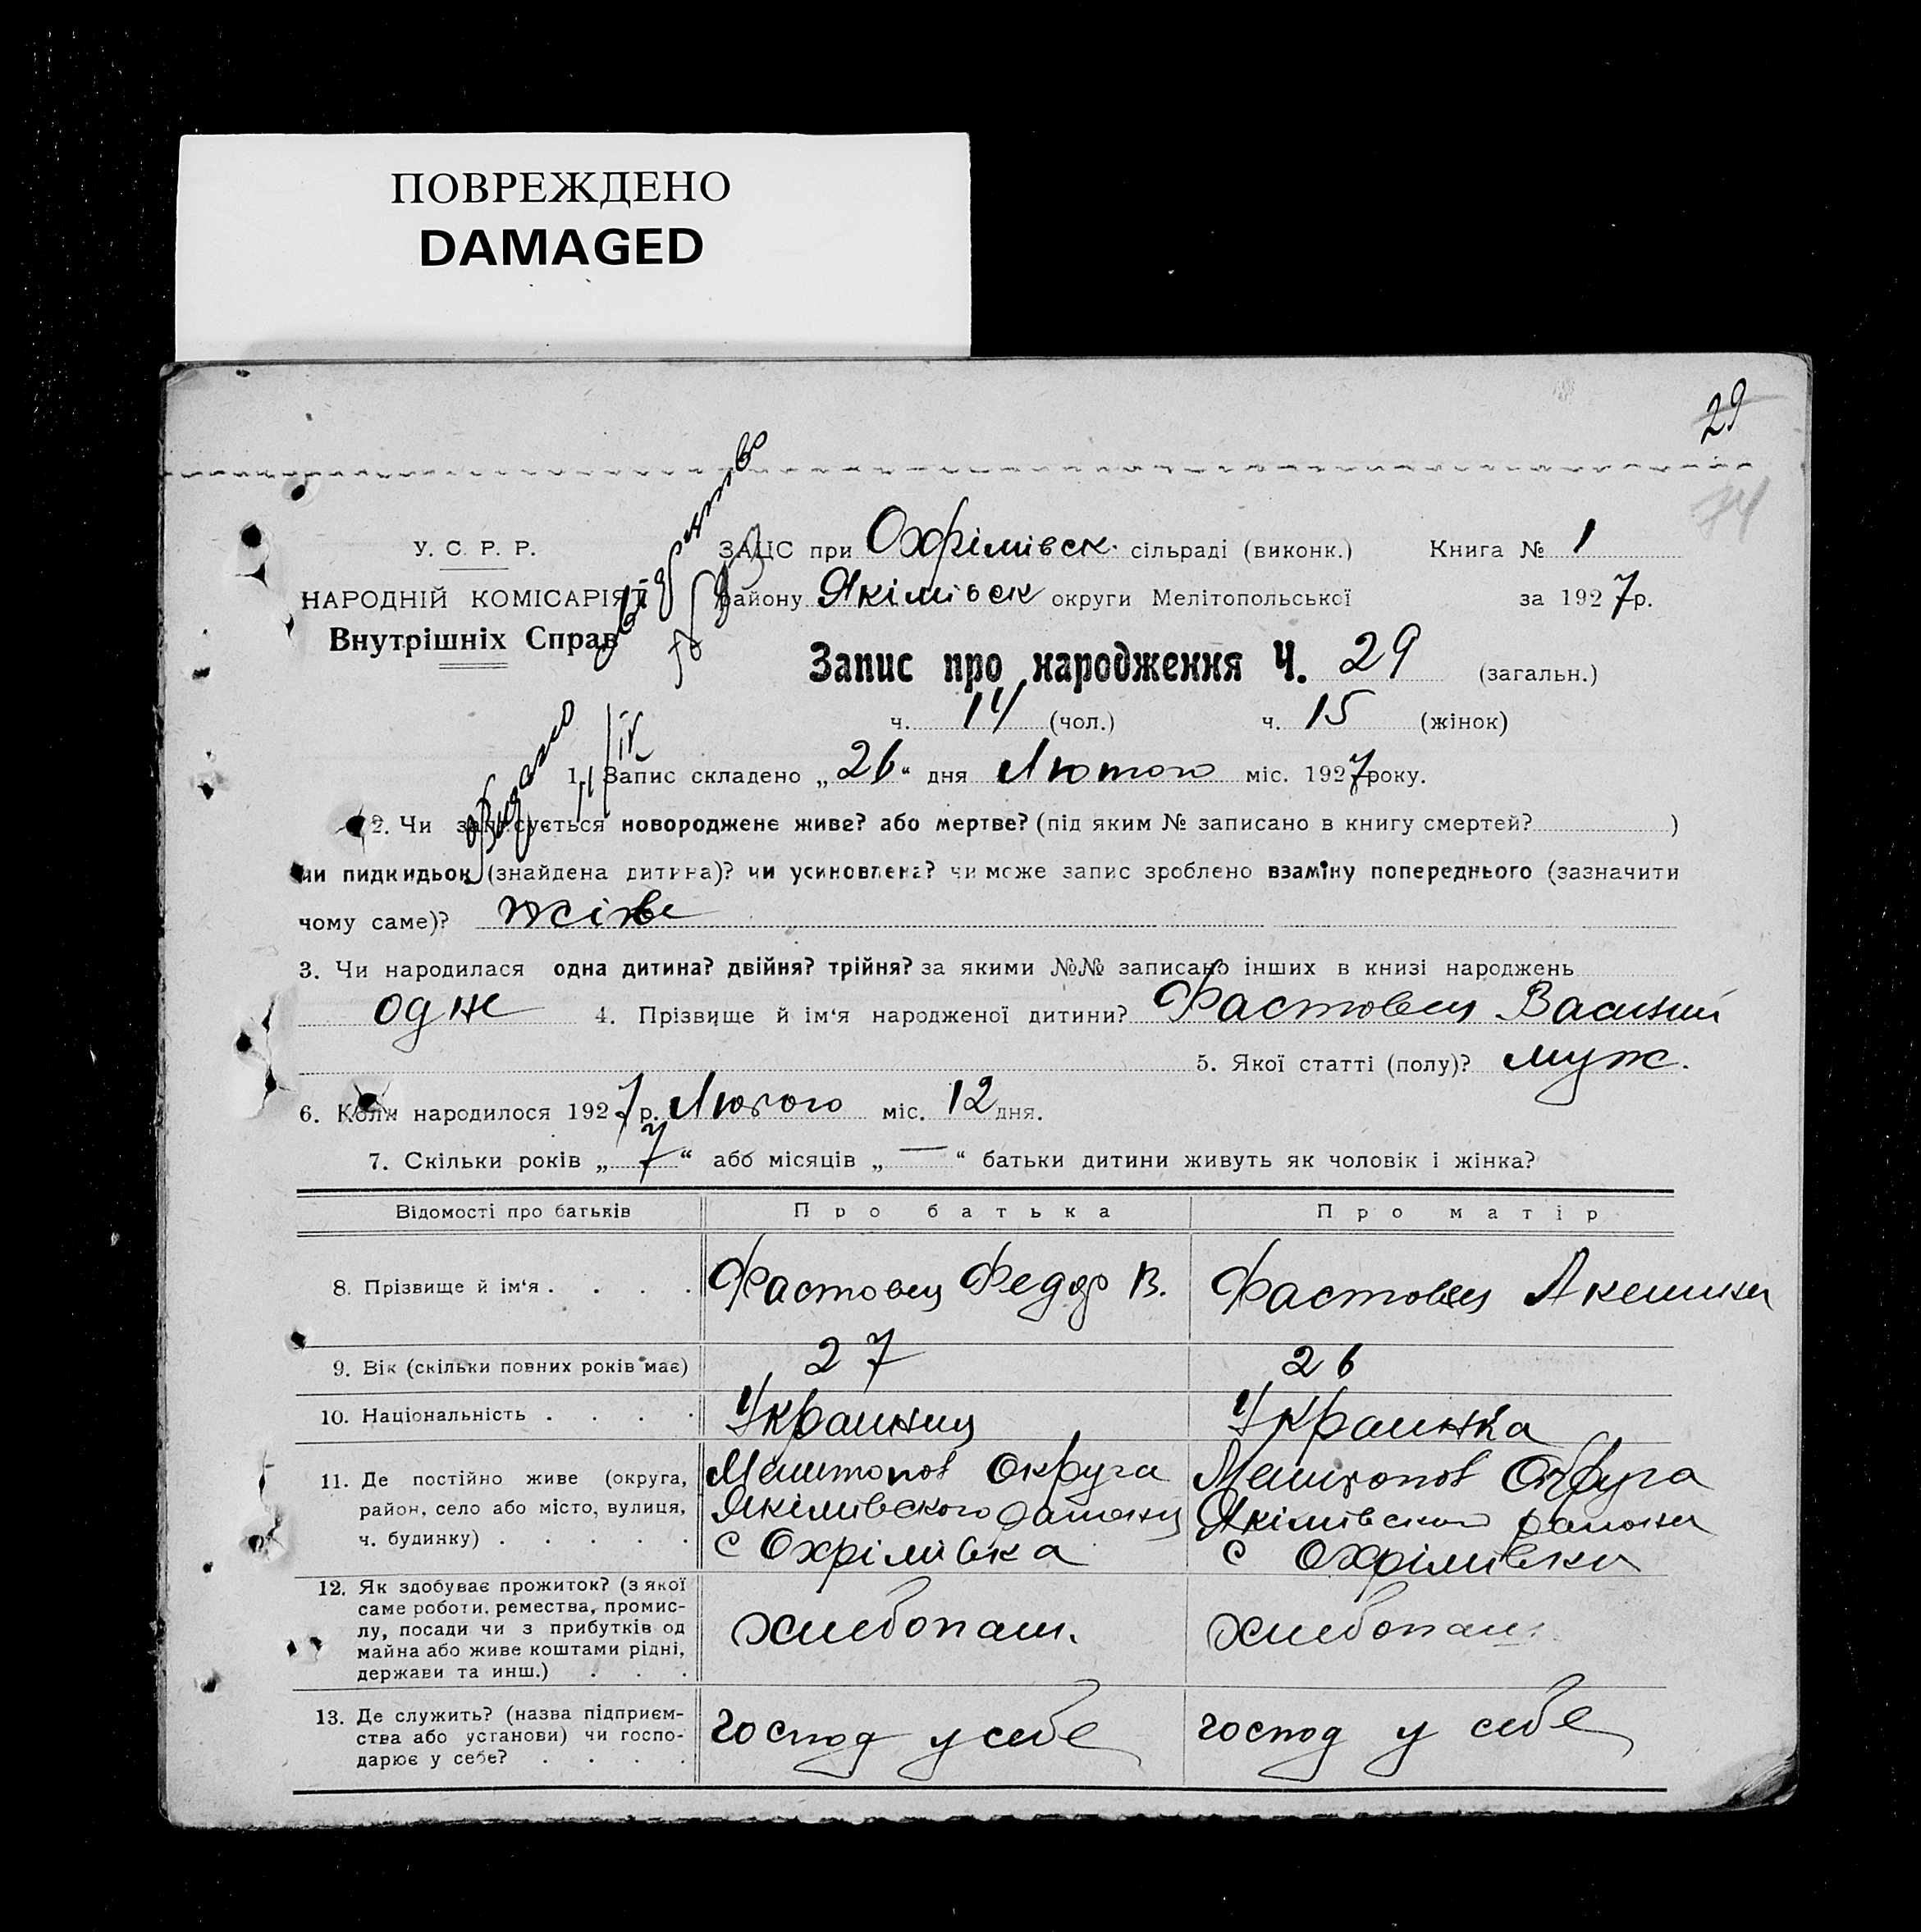 ПОВРЕЖДЕНО
DAMAGED
29
74
У. С. Р. Р.
НАРОДНІЙ КОМІСАРІЯТ
Внутрішніх Справ
ЗАЦС при Охрімівск. сільраді (виконк.) Книга № 1
району Якімівск округи Мелітопольської за 1927 р.
Запис про народження Ч. 29 (загальн.)
ч. 14 (чол.) ч. 15 (жінок)
1. Запис складено „26“ дня Лютого міс. 1927 року.
2. Чи записується новороджене живе? або мертве? (під яким № записано в книгу смертей? )
чи пидкидьок (знайдена дитина)? чи усиновлена? чи може запис зроблено взаміну попереднього (зазначити
чому саме)? живе
3. Чи народилася одна дитина? двійня? трійня? за якими №№ записано інших в книзі народжень
одне 4. Прізвище й ім‘я народженої дитини? Фастовец Василий
5. Якої статті (полу)? муж.
6. Коли народилося 1927 р. Лютого міс. 12 дня.
7. Скільки років „7“ або місяців „—“ батьки дитини живуть як чоловік і жінка?
Відомості про батьків Про батька Про матір
8. Прізвище й ім‘я . . . . Фастовец Федор В. Фастовец
9. Вік (скільки повних років має) 27 26
10. Національність . . . . Украинец Украинка
11. Де постійно живе (округа, Мелитопол Округа Мелитопол Округа
район, село або місто, вулиця, Якімівского району Якімівского району
ч. будинку) . . . . . с Охрімівка с Охрімівка
12. Як здобуває прожиток? (з якої
саме роботи, ремества, промис-
лу, посади чи з прибутків од хлебопаш. хлебопаш.
майна або живе коштами рідні,
держави та инш.) . . .
13. Де служить? (назва підприєм-
ства або установи) чи госпо- господ у себе господ у себе
дарює у себе? . . . .